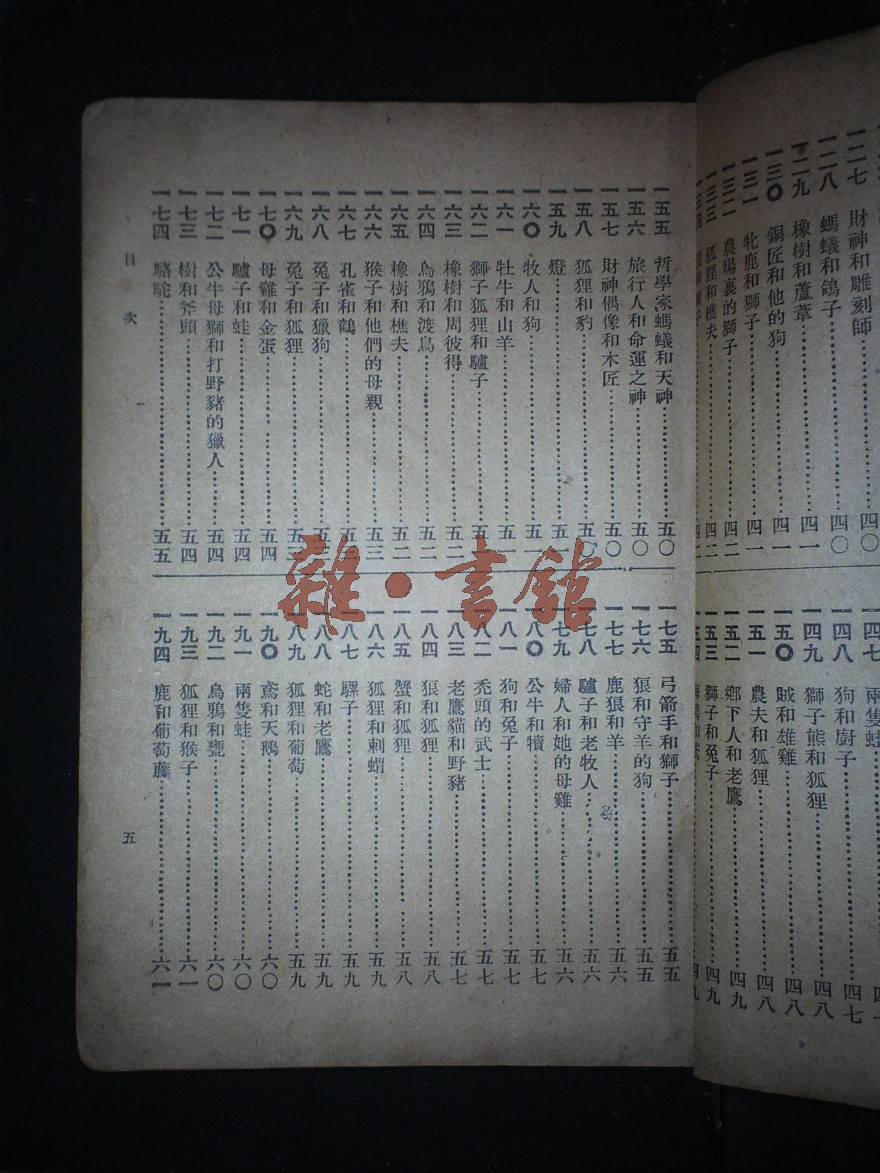 一二七 財神和雕刻師……四〇
一二八 螞蟻和鴿子……四〇
一二九 橡樹和蘆葦……四一
一三〇 銅匠和他的狗……四一
一三一 牝鹿和獅子……四一
一三二 農場裏的獅子……四二
一三三 狐狸和樵夫……四二
一三四
一四七 兩隻蛙……
一四八 狗和廚子……四七
一四九 獅子熊和狐狸……四八
一五〇 賊和雄雞……四八
一五一 農夫和狐狸……四八
一五二 鄉下人和老鷹……四九
一五三 獅子和兔子……四九
一五四
一五五 哲學家螞蟻和天神……五〇
一五六 旅行人和命運之神……五〇
一五七 財神偶像和木匠……五〇
一五八 狐狸和豹……五〇
一五九 燈……五一
一六〇 牧人和狗……五一
一六一 牡牛和山羊……五一
一六二 獅子狐狸和驢子……五
一六三 橡樹和周彼得……五二
一六四 烏鴉和渡鳥……五二
一六五 橡樹和樵夫……五二
一六六 猴子和他們的母親……五三
一六七 孔雀和鶴……五三
一六八 兔子和獵狗……五三
一六九 兔子和狐狸……五三
一七〇 母雞和金蛋……五四
一七一 驢子和蛙……五四
一七二 公牛母獅和打野豬的獵人……五四
一七三 樹和斧頭……五四
一七四 駱駝……五五
一七五 弓箭手和獅子……五五
一七六 狼和守羊的狗……五五
一七七 鹿狼和羊……五六
一七八 驢子和老牧人……五六
一七九 婦人和她的母雞……五六
一八〇 公牛和犢……五七
一八一 狗和兔子……五七
一八二 禿頭的武士……五七
一八三 老鷹貓和野豬……五七
一八四 狼和狐狸……五八
一八五 蟹和狐狸……五八
一八六 狐狸和刺蝟……五九
一八七 騾子……五九
一八八 蛇和老鷹……五九
一八九 狐狸和葡萄……五九
一九〇 鳶和天鵝……六〇
一九一 兩隻蛙……六〇
一九二 烏鴉和甕……六〇
一九三 狐狸和猴子……六一
一九四 鹿和葡萄藤……六一
目次
五
雜·書館